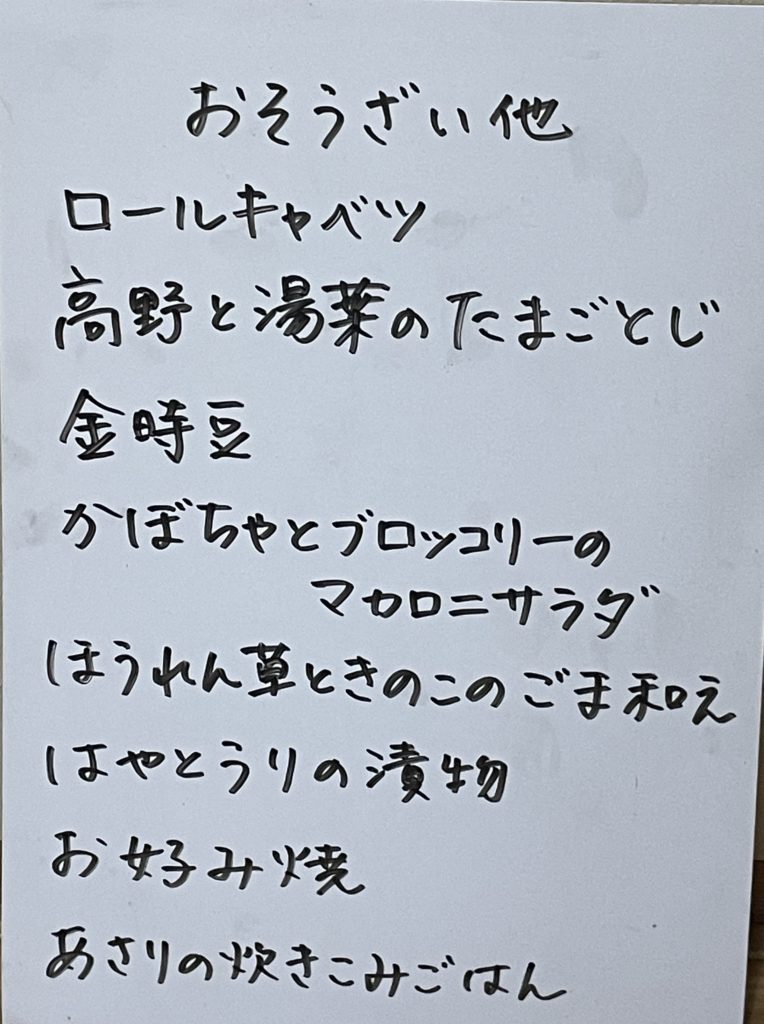 おそうざい他
ロールキャベツ
高野と湯葉のたまごとじ
金時豆
かぼちゃとブロッコリーの
マカロニサラダ
ほうれん草ときのこのごま和え
はやとうりの漬物
お好み焼
あさりの炊きこみごはん